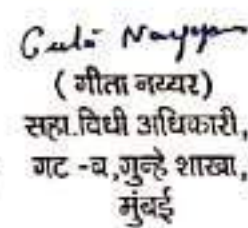 Geeta Nayyar
( गीता नय्यर)
सहा.विधी अधिकारी,
गट -च,गुन्हे शाखा,
मुंबई